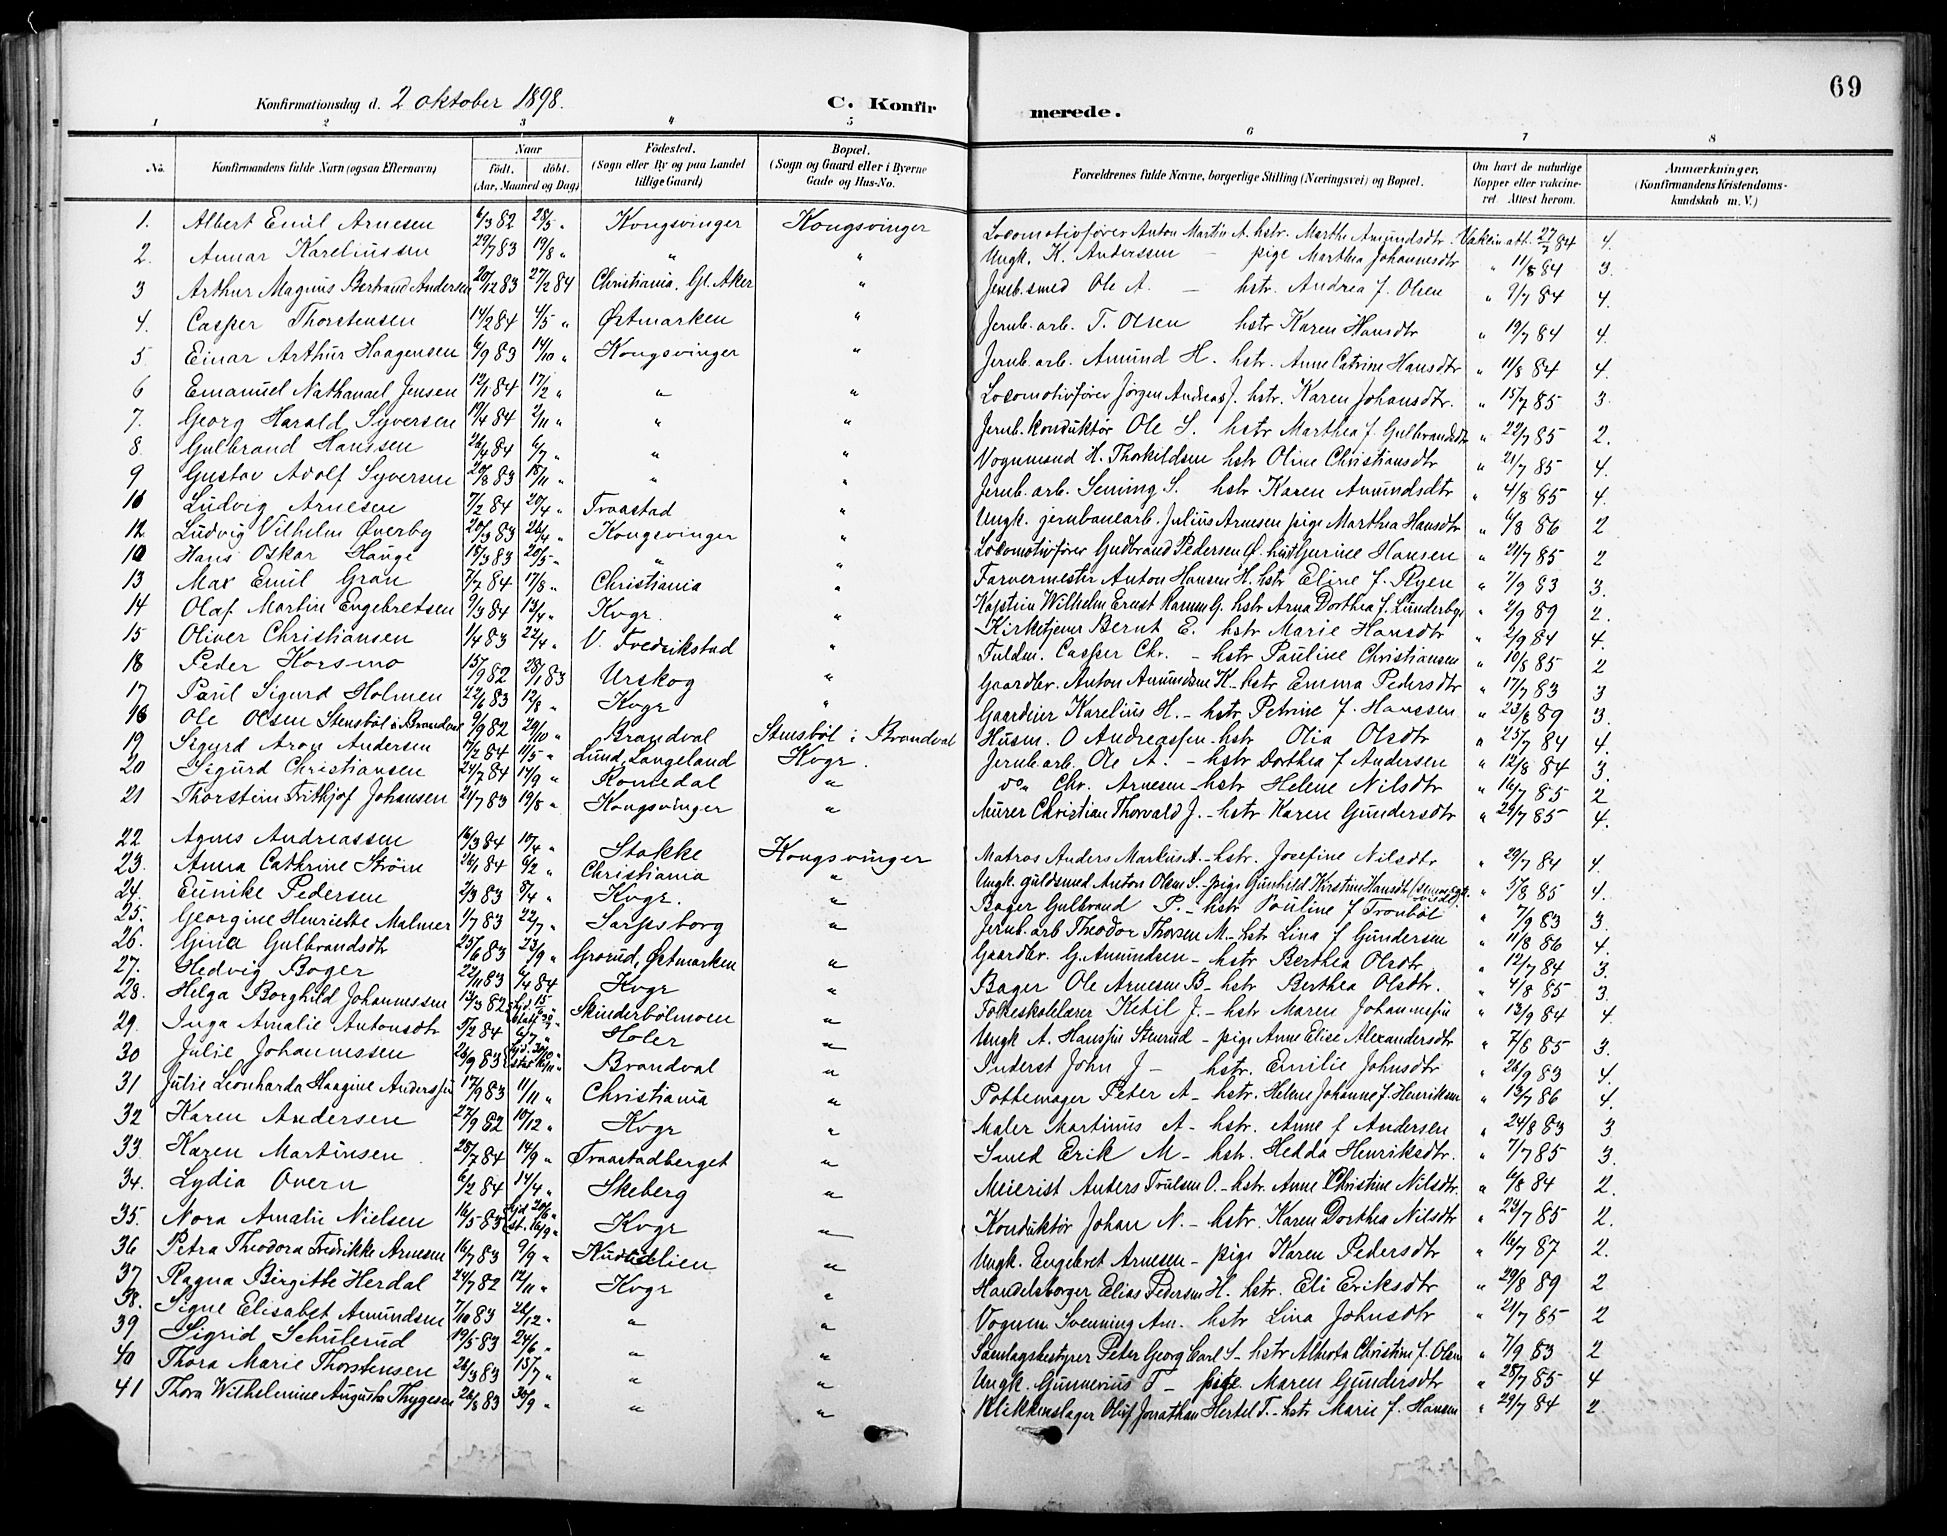 69
Konfirmationsdag d. 2 oktober 1898. C. Konfirmerede.
1 2 3 4 5 6 7 8
No. Konfirmandens fulde Navn (ogsaa Efternavn) Naar født. døbt. (Aar, Maaned og Dag) Fødested. (Sogn eller By og paa Landet tillige Gaard) Bopæl. (Sogn og Gaard eller i Byerne Gade og Hus-No. Forældrenes fulde Navne, borgerlige Stilling (Næringsvei) og Bopæl. Om havt de naturlige Kopper eller vakcineret. Attest herom. Anmærkninger. (Konfirmandens Kristendomskundskab m. V.)
1. Albert Emil Arnesen 6/3 82 28/5 " Kongsvinger Kongsvinger Locomotivfører Anton Martin A. hstr. Marthe Amundsdtr. Vakcin att. 27/7 84 4.
2. Annar Kareliussen 29/7 83 19/8 " " " Ungk. K. Anderssen - pige Marthea Johannesdtr " 11/8 84 3.
3 Arthur Magnus Bertrand Andersen 20/12 83 27/2 84 Christiania. Gl. Aker " Jernb. smed Ole A. - hstr. Andrea f. Olsen " 9/7 84 4.
4. Casper Thorstensen 14/2 84 4/5 " Østmarken " Jernb. arb. T. Olsen hstr Karen Hansdtr " 19/7 84 4.
5 Einar Arthur Haagensen 6/9 83 14/10 " Kongsvinger " Jernb. arb. Amund H. hstr. Anne Catrine Hansdtr " 11/8 84 4.
6 Emanuel Nathanael Jensen 12/1 84 17/2 " " " Locomotivfører Jørgen Andreas J. hstr. Karen Johansdtr. " 15/7 85 3.
7. Georg Harald Syversen 19/4 84 2/11 " " " Jernb. konduktör Ole S. hstr Marthea f. Gulbrandsdtr " 22/7 85 2.
8. Gulbrand Hanssen 26/4 84 6/7 " " " Vognmand H. Thorkildsen hstr Oline Christiansdtr " 21/7 85 4.
9 Gustav Adolf Syversen 20/8 83 18/11 " " " Jernb. arb. S. hstr Karen Amundsdtr " 4/8 85 4.
Ludvig Arnesen 7/2 84 20/4 " Traastad " Ungk. jernbanearb. Julius Arnesen pige Marthea Hansdtr " 6/8 86 2
12 Ludvig Vilhelm Øverby 20/3 83 26/4 " Kongsvinger " Locomotivfører Gudbrand Pedersen Ø. Gurine Hansen " 21/7 85 2
10 Hans Oskar Hauge 18/3 83 20/5 " " " Farvermester Anton Hansen H. hstr Eline f. Ryen " 7/9 83 3.
13 Max Emil Gran 7/7 84 17/8 " Christiania " Kaptein Wilhelm Ernst G. hstr Arna Dorthea f. Lunderbye " 2/9 89 2.
14 Olaf Martin Engebretsen 9/3 84 13/4 " Kvgr. " Kirketjener Bernt E. hstr Marie Hansdtr " 2/9 84 4.
15 Oliver Christiansen 1/4 83 22/4 " V. Fredrikstad " Fuldm. Casper Chr. - hstr Pauline Christiansen " 10/8 85 2
18 Peder Korsmo 15/9 82 28/1 83 Urskog " Gaardbr. Anton Amundsen K - hstr Emma Pedersdtr " 17/7 83 3
17 Paul Sigurd Holmen 22/6 83 12/8 " Kvgr " Gaardeier Karelius H. - hstr. Petrine f. Hanssen " 23/8 89 3.
Ole Olsen Stensböl i Brandval 9/9 82 29/10 " Brandval Stensböl i Brandval Husm. O Andreassen - hstr Olia Olsdtr " 25/7 84 4.
19 Sigurd Aron Andersen 17/2 84 11/5 " Lund, Langeland Kvgr. Jernb arb. Ole A. - hstr Dorthea f Andersen " 12/8 84 3.
20 Sigurd Christiansen 24/7 84 14/9 " Romedal " do. Chr. Arnesen - hstr Helene Nilsdtr " 16/7 85 2
21 Thorstein Frithjof Johansen 21/7 83 19/8 " Kongsvinger " Murer Christian Thorvald J. - hstr Karen Gundersdtr " 21/7 85 4.
22 Agnes Andreassen 16/3 84 10/4 " Stokke Kongsvinger Matros Anders Markus A. - hstr. Josefine Nilsdtr " 29/7 84 4.
23. Anna Cathrine Ström 26/1 84 6/2 " Christiania " Ungk. guldsmed Anton Olsen S. - pige Gunhild Kirstine Hansdt " 5/8 85 4.
24. Eunike Pedersen 2/3 83 8/4 " Kvgr. " Bager Gulbrand P. - hstr Pauline f Tronböl " 7/9 83 3.
25. Georgine Henriette Malmer 1/7 83 22/7 " Sarpsborg " Jernb. arb Theodor Thorsen M - hstr Lina f Gundersen " 11/8 86 4.
26. Gina Gulbrandsdtr 25/6 83 23/9 " Grorud, Østmarken " Gaardbr. G. Amundsen - hstr Berthea Olsdtr " 12/7 84 3.
27. Hedvig Boger 22/11 83 4/4 84 Kvgr " Bager Ole Arnesen B - hstr Berthea Olsdtr. " 4/8 85 3.
28. Helga Borghild Johannessen 13/3 82 Skinderbölmoen " Folkeskolelærer Ketil J. - hstr Maren Johannesen " 13/9 84 4.
29. Inga Amalie Antonsdtr 5/2 84 6/7 " Holer " Ungk A. Hanssen Stenrud - pige Anne Elise Alexandersdtr " 7/8 85 3.
30 Julie Johannessen 26/9 83 Brandval " Inderst John J - hstr. Emilie Johnsdtr " 26/9 83 4.
31 Julie Leonharda Haagine Anderssen 17/9 83 11/11 " Christiania " Pottemager Peter A - hstr. Helene Johanne f. Henriksen " 13/7 86 4.
32 Karen Andersen 27/9 82 10/12 " Kvgr " Maler Martinus A - hstr. Anne f Andersen " 24/8 83 3
33. Karen Martinsen 28/7 84 14/9 " Traastadberget " Smed Erik M - hstr. Hedda Henriksdtr. " 7/7 85 3.
34. Lydia Overn 6/2 84 14/4 " Skeberg " Meierist Anders Trulsen O. - hstr. Anne Christine Nilsdtr. " 6/8 84 2.
35. Nora Amalie Nielsen 16/5 83 Kvgr " Konduktör Johan N. - hstr. Karen Dorthea Nilsdtr " 23/7 85 2.
36 Petra Theodora Fredrikke Arnesen 16/7 83 9/9 " " Ungk. Engebret Arnesen - pige Karen Pedersdtr " 16/7 87 2.
37 Ragna Birgitte Herdal 24/7 82 12/11 " Kvgr " Handelsborger Elias Pedersen H. hstr. Eli Eriksdtr " 29/8 89 2
38. Signe Elisabet Amundsen 7/10 83 26/12 " " " Vognm. Svenning Am. hstr Lina Johnsdtr " 21/7 85 2
39 Sigrid Schulerud 19/5 83 24/6 " " " Samlagsbestyrer Peter Georg Carl S - hstr Alberta Christine f. Olsen " 7/9 83 2
40 Thora Marie Thorstensen 26/3 83 15/7 " " " Ungk. Gunnerius T - pige. Maren Gundersdtr " 28/7 85 4
41 Thora Wilhelmine Augusta Thygesen 26/8 83 30/9 " " " Blikkenslager Oluf Jonathan Hertel T. - hstr Marie f. Hansen " 29/7 84 2.